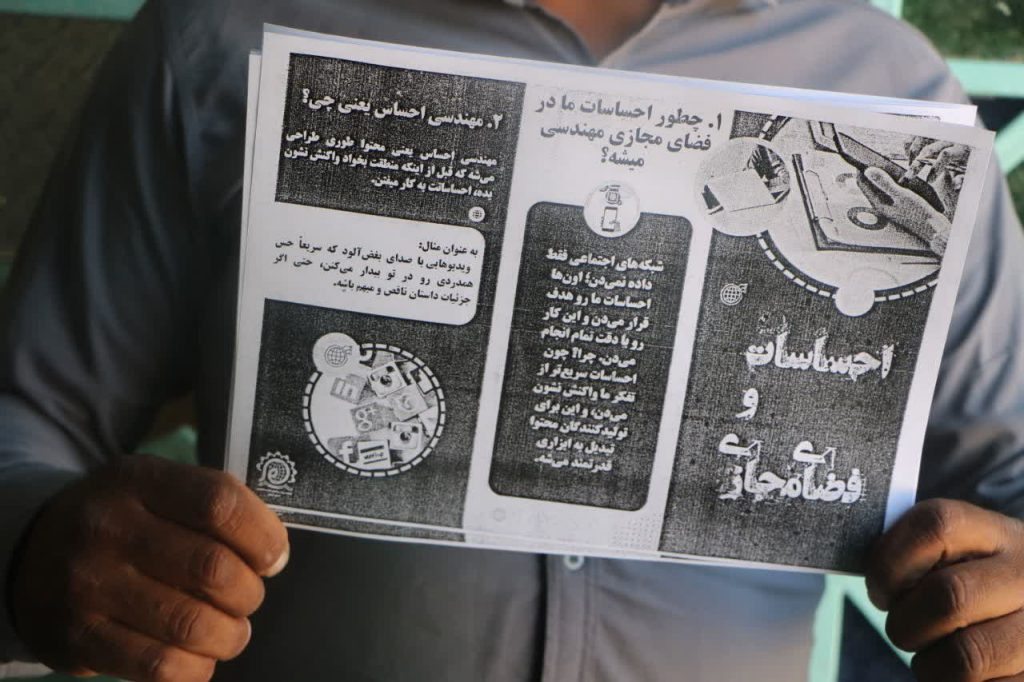 احساسات
و
فضای مجازی
۱. چطور احساسات ما در
فضای مجازی مهندسی
میشه؟
شبکه‌های اجتماعی فقط
داده نمی‌دن؛ اون‌ها
احساسات ما رو هدف
قرار می‌دن و این کار
رو با دقت تمام انجام
می‌دن. چرا؟ چون
احساسات سریع‌تر از
تفکر ما واکنش نشون
می‌دن، و این برای
تولیدکنندگان محتوا
تبدیل به ابزاری
قدرتمند می‌شه.
۲. مهندسی احساس یعنی چی؟
مهندسی احساس یعنی محتوا طوری طراحی
می‌شه که قبل از اینکه منطقت بخواد واکنش نشون
بده، احساساتت به کار میفتن.
به عنوان مثال:
ویدیوهایی با صدای بغض‌آلود که سریعاً حس
همدردی رو در تو بیدار می‌کنن، حتی اگر
جزئیات داستان ناقص و مبهم باشه.